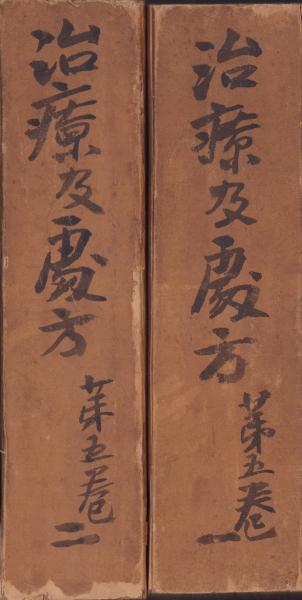 治療及處方
第五巻
一
治療及處方
第五巻
二